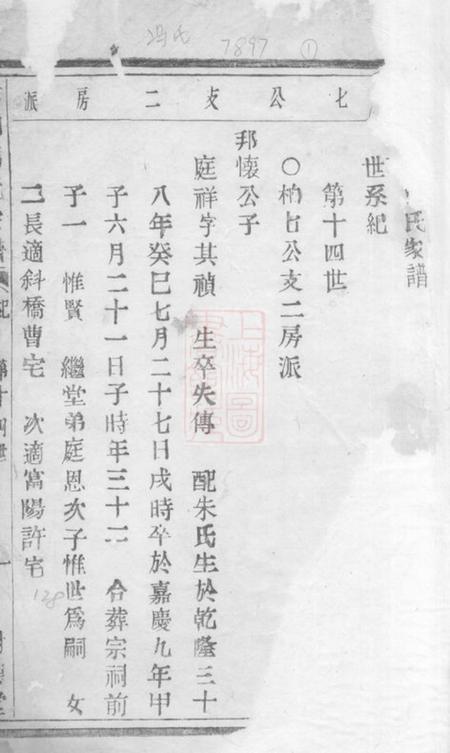 馮氏 7897 ①
七公支二房派
氏家譜
世系紀
第十四世
○柏七公支二房派
邦懷公子
庭祥字其禎 生卒失傳 配朱氏生於乾隆三十
八年癸巳七月二十七日戌時卒於嘉慶九年甲
子六月二十一日子時年三十二 合葬宗祠前
子一 惟賢 繼堂弟庭恩次子惟世爲嗣 女
二長適斜橋曹宅 次適富陽許宅
128
紀 第十四世 一